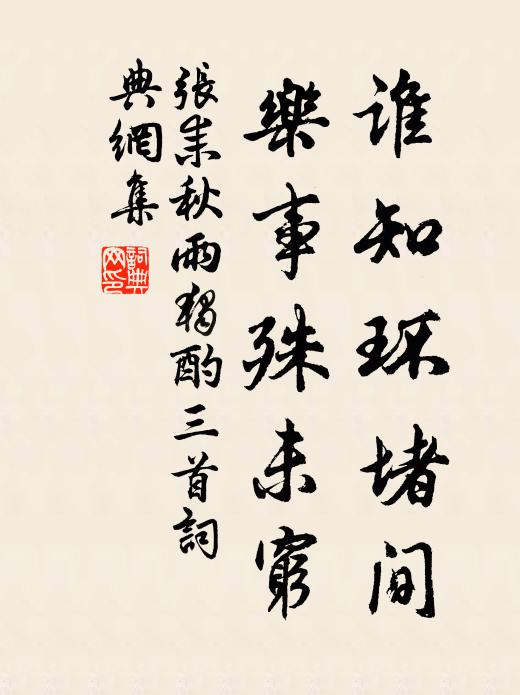 谁知环堵间
樂事殊未窮
張耒秋雨獨酌三首詞
典網集
詞典
网印